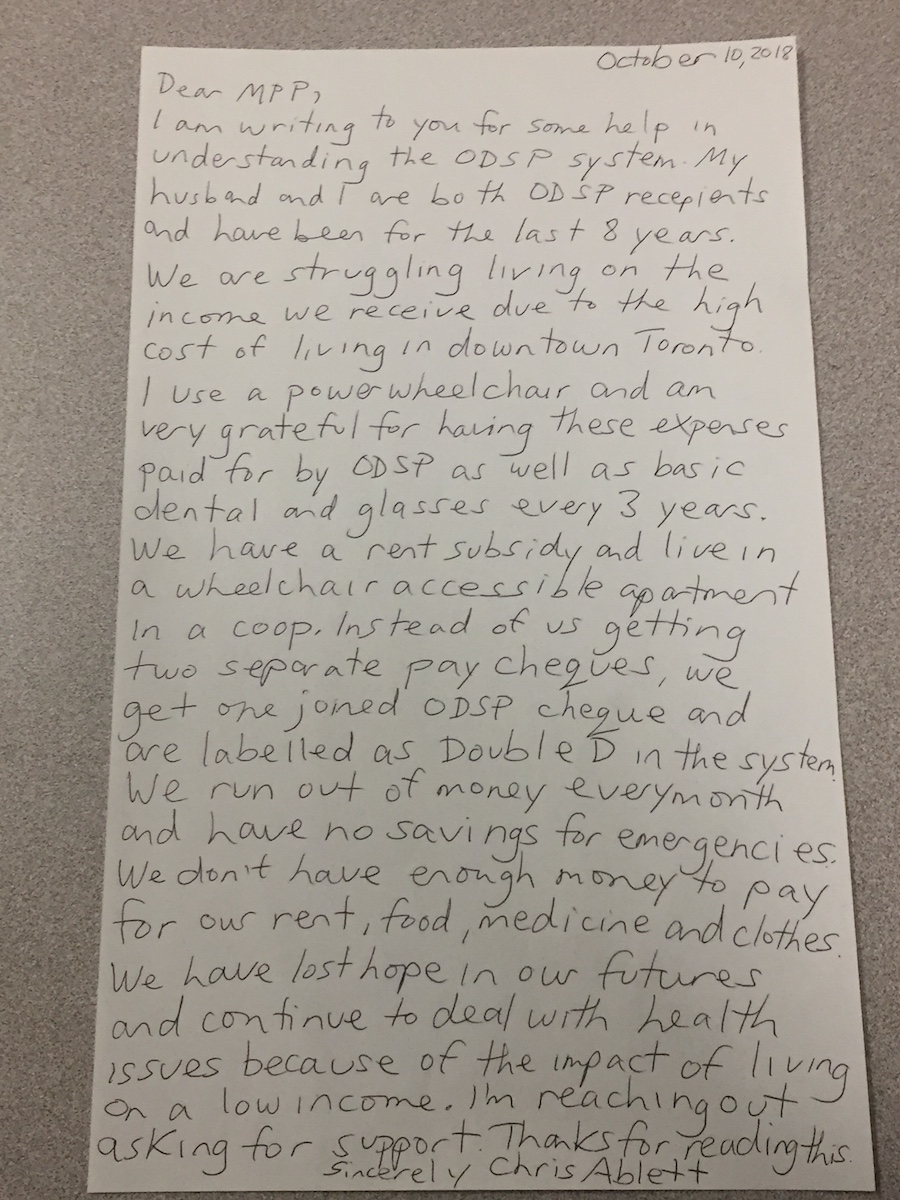 October 10, 2018
Dear MPP,
I am writing to you for some help in
understanding the ODSP system. My
husband and I are both ODSP recepients
and have been for the last 8 years.
We are struggling living on the
income we receive due to the high
cost of living in downtown Toronto.
I use a power wheelchair and am
very grateful for having these expenses
paid for by ODSP as well as basic
dental and glasses every 3 years.
We have a rent subsidy and live in
a wheelchair accessible apartment
in a coop. Instead of us getting
two separate pay cheques, we
get one joined ODSP cheque and
are labelled as Double D in the system.
We run out of money everymonth
and have no savings for emergencies.
We don't have enough money to pay
for our rent, food, medicine and clothes.
We have lost hope in our futures
and continue to deal with health
issues because of the impact of living
on a low income. I'm reaching out
asking for support. Thanks for reading this.
Sincerely Chris Ablett